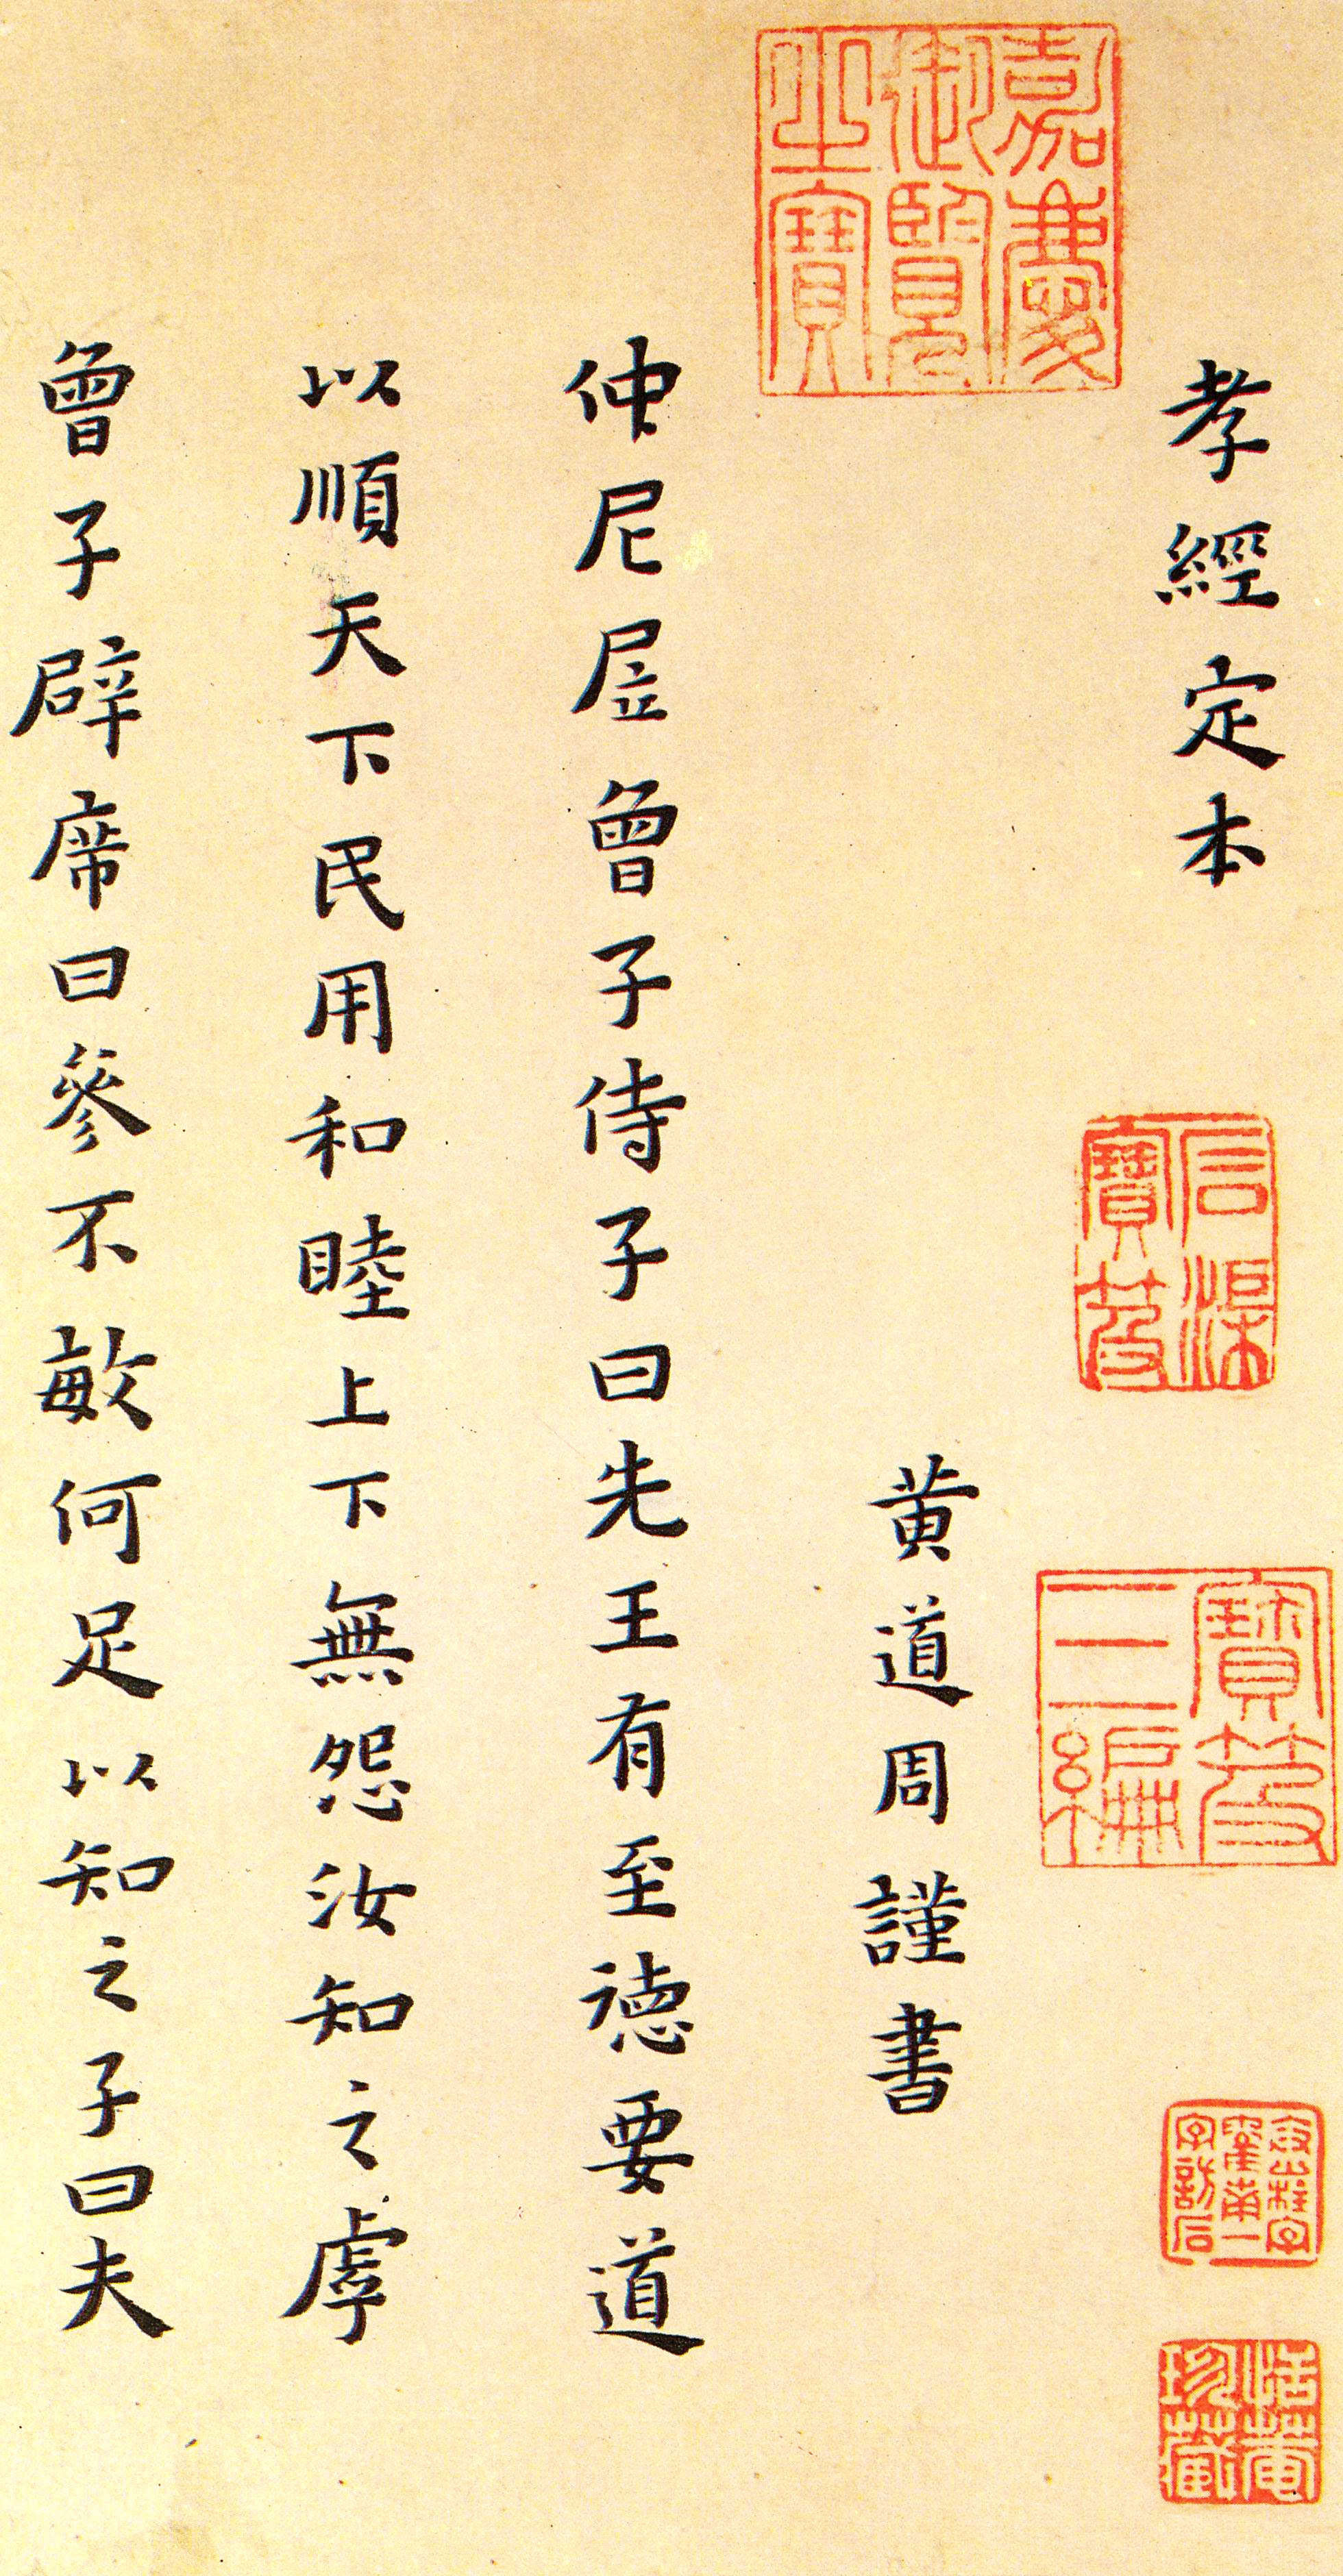 孝經定本
石渠寶笈
寶笈三編
恬菴珍藏
嘉慶御覽之寶
黄道周謹書
仲尼㞐曾子侍子曰先王有至徳要道
以順天下民用和睦上下無怨汝知之虖
曾子辟席曰參不敏何足以知之子曰夫